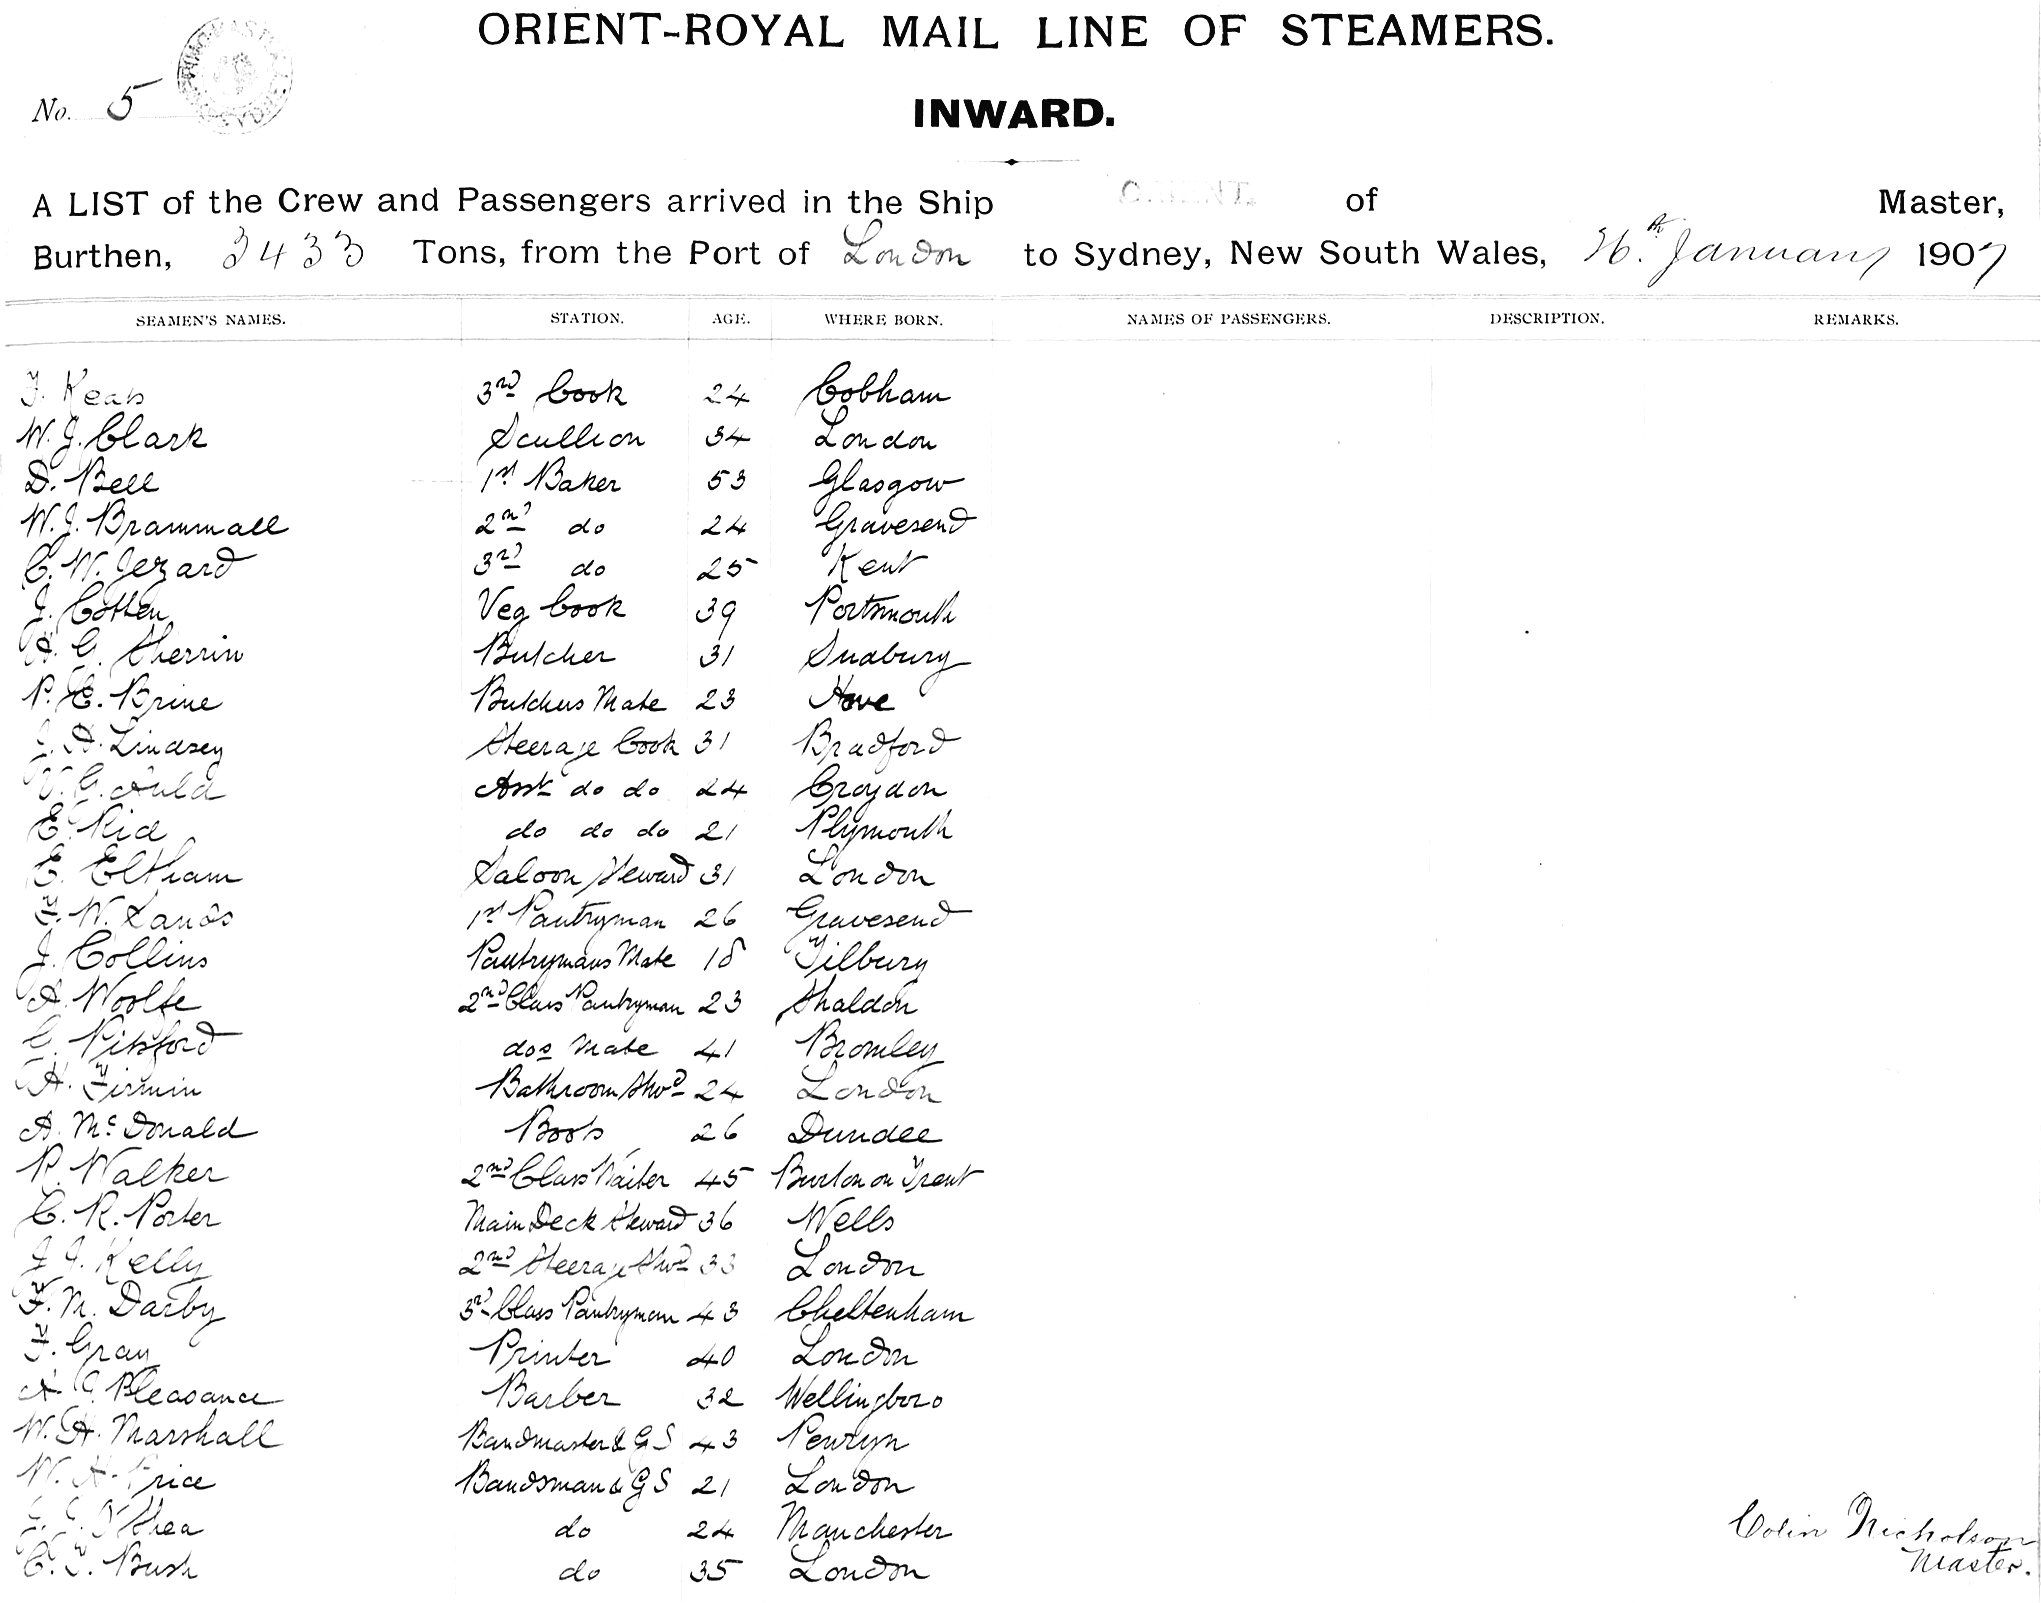 ORIENT-ROYAL MAIL LINE OF STEAMERS.
No. 5
INWARD.
A LIST of the Crew and Passengers arrived in the Ship ORIENT. of Master,
Burthen, 3433 Tons, from the Port of London to Sydney, New South Wales, 26th January 1907
SEAMEN'S NAMES. STATION. AGE. WHERE BORN. NAMES OF PASSENGERS. DESCRIPTION. REMARKS.
Keats 3rd Cook 24 Cobham
W. J. Clark Scullion 34 London
D. Bell 1st Baker 53 Glasgow
W. J. Brammall 2nd do 24 Gravesend
C. W. Jezard 3rd do 25 Kent
J. Cotten Veg Cook 39 Portsmouth
A. G. Sherrin Butcher 31 Sudbury
P. E. Brine Butchers Mate 23 Hove
J. A. Lindsey Steerage Cook 31 Bradford
Auld Asst do do 24 Croydon
E. Rid do do do 21 Plymouth
E. Eltham Saloon Steward 31 London
F. W. Sands 1st Pantryman 26 Gravesend
J. Collins Pantrymans Mate 18 Tilbury
A. Woolfe 2nd Class Pantryman 23 Shaldon
Pitsford dos Mate 41 Bromley
A. Firmin Bathroom Stwd 24 London
A. McDonald Boots 26 Dundee
P. Walker 2nd Class Waiter 45 Burton on Trent
C. R. Porter Main Deck Steward 36 Wells
J. J. Kelly 2nd Steerage Stwd 33 London
F. M. Darby 3rd Class Pantryman 43 Cheltenham
F. Gray Printer 40 London
A. C. Pleasance Barber 32 Wellingboro
W. H. Marshall Bandmaster & G S 43 Penryn
W. H. Price Bandsman & G S 21 London
O'Shea do 24 Manchester
C. F. Bush do 35 London
Colin Nicholson
Master.